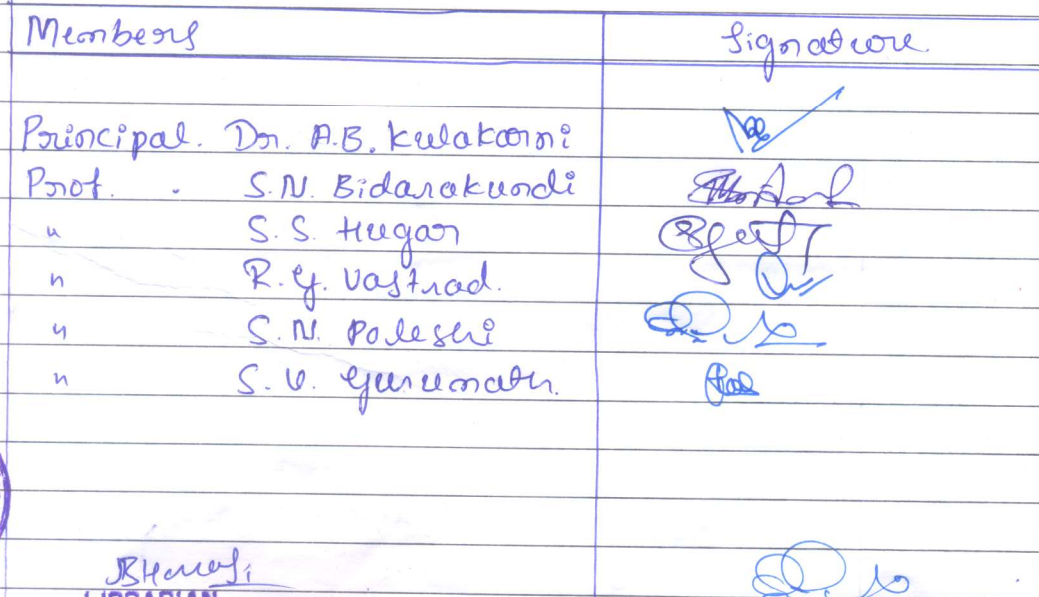 Members Signature
Principal. Dr. A.B. Kulakarni
Prof. S.N. Bidarakundi
" S.S. Hugar
" R.G. Vastrad.
" S.N. Poleshi
" S.V. Gurumath.
LIBRARIAN